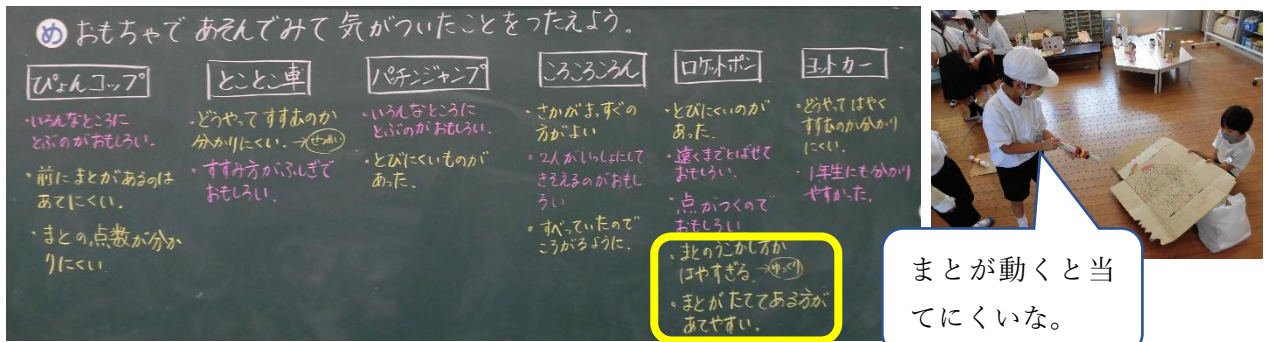 め おもちゃで あそんでみて 気がついたことをつたえよう。
ぴょんコップ
・いろんなところに
とぶのがおもしろい。
・前にまとがあるのは
あてにくい。
・まとの点数が分か
りにくい
とことこ車
・どうやってすすむのか
分かりにくい。→せつめい
・すすみ方がふしぎで
おもしろい。
パチンジャンプ
・いろんなところに
とぶのがおもしろい。
・とびにくいものが
あった。
ころころころん
・さかがまっすぐの
方がよい
・2人がいっしょにして
きそえるのがおもし
ろい
・すべっていたので
ころがるように。
ロケットポン
・とびにくいのが
あった。
・遠くまでとばせて
おもしろい。
・点がつくので
おもしろい
・まとのうごかし方が
はやすぎる。→ゆっくり
・まとがたててある方が
あてやすい。
ヨットカー
・どうやってはやく
すすむのか分かり
にくい。
・1年生にも分かり
やすかった。
まとが動くと当
てにくいな。